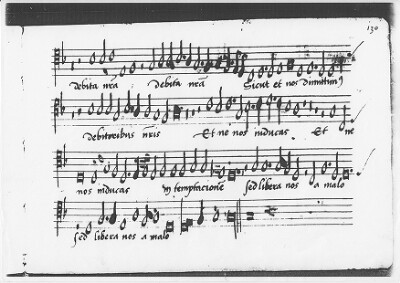 130
Debita nr̄a Debita nr̄a Sicut et nos dimittim9
Debitoribus nr̄is Et ne nos inducas Et ne
nos inducas in temptacione sed libera nos a malo
sed libera nos a malo